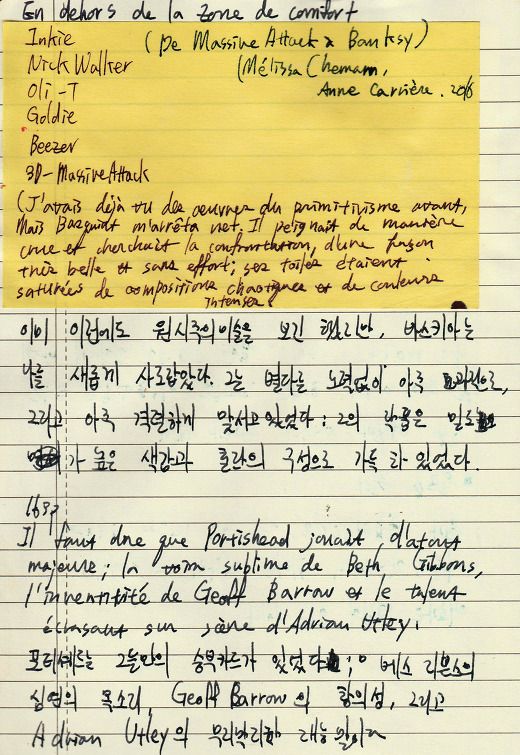 En dehors de la zone de comfort
Inkie (De Massive Attack à Banksy)
Nick Walker (Mélissa Chemam,
Oli-T Anne Carrière. 2016
Goldie
Beezer
3D-MassiveAttack
(J'avais déjà vu des oeuvres du primitivisme avant,
Mais Basquiat m'arrêta net. Il peignait de manière
crue et cherchait la confrontation, d'une façon
très belle et sans effort; ses toiles étaient
saturées de compositions chaotiques et de couleurs
intenses.
이미 이전에도 원시주의 미술을 보긴 했었지만, 바스키아는
나를 새롭게 사로잡았다. 그는 별다른 노력없이 아주
그리고 아주 격렬하게 맞서고 있었다: 그의 작품은 밀도
가 높은 색감과 혼란의 구성으로 가득 차 있었다.
Il faut dne que Portishead jouait d'atouts
majeurs; la voix sublime de Beth Gibbons,
l'inventivité de Geoff Barrow et le talent
écrasant sur scène d'Adrian Utley.
승부카드가 있었다; 베스 기븐스의
심연의 목소리, Geoff Barrow의 창의성, 그리고
Adrian Utley의